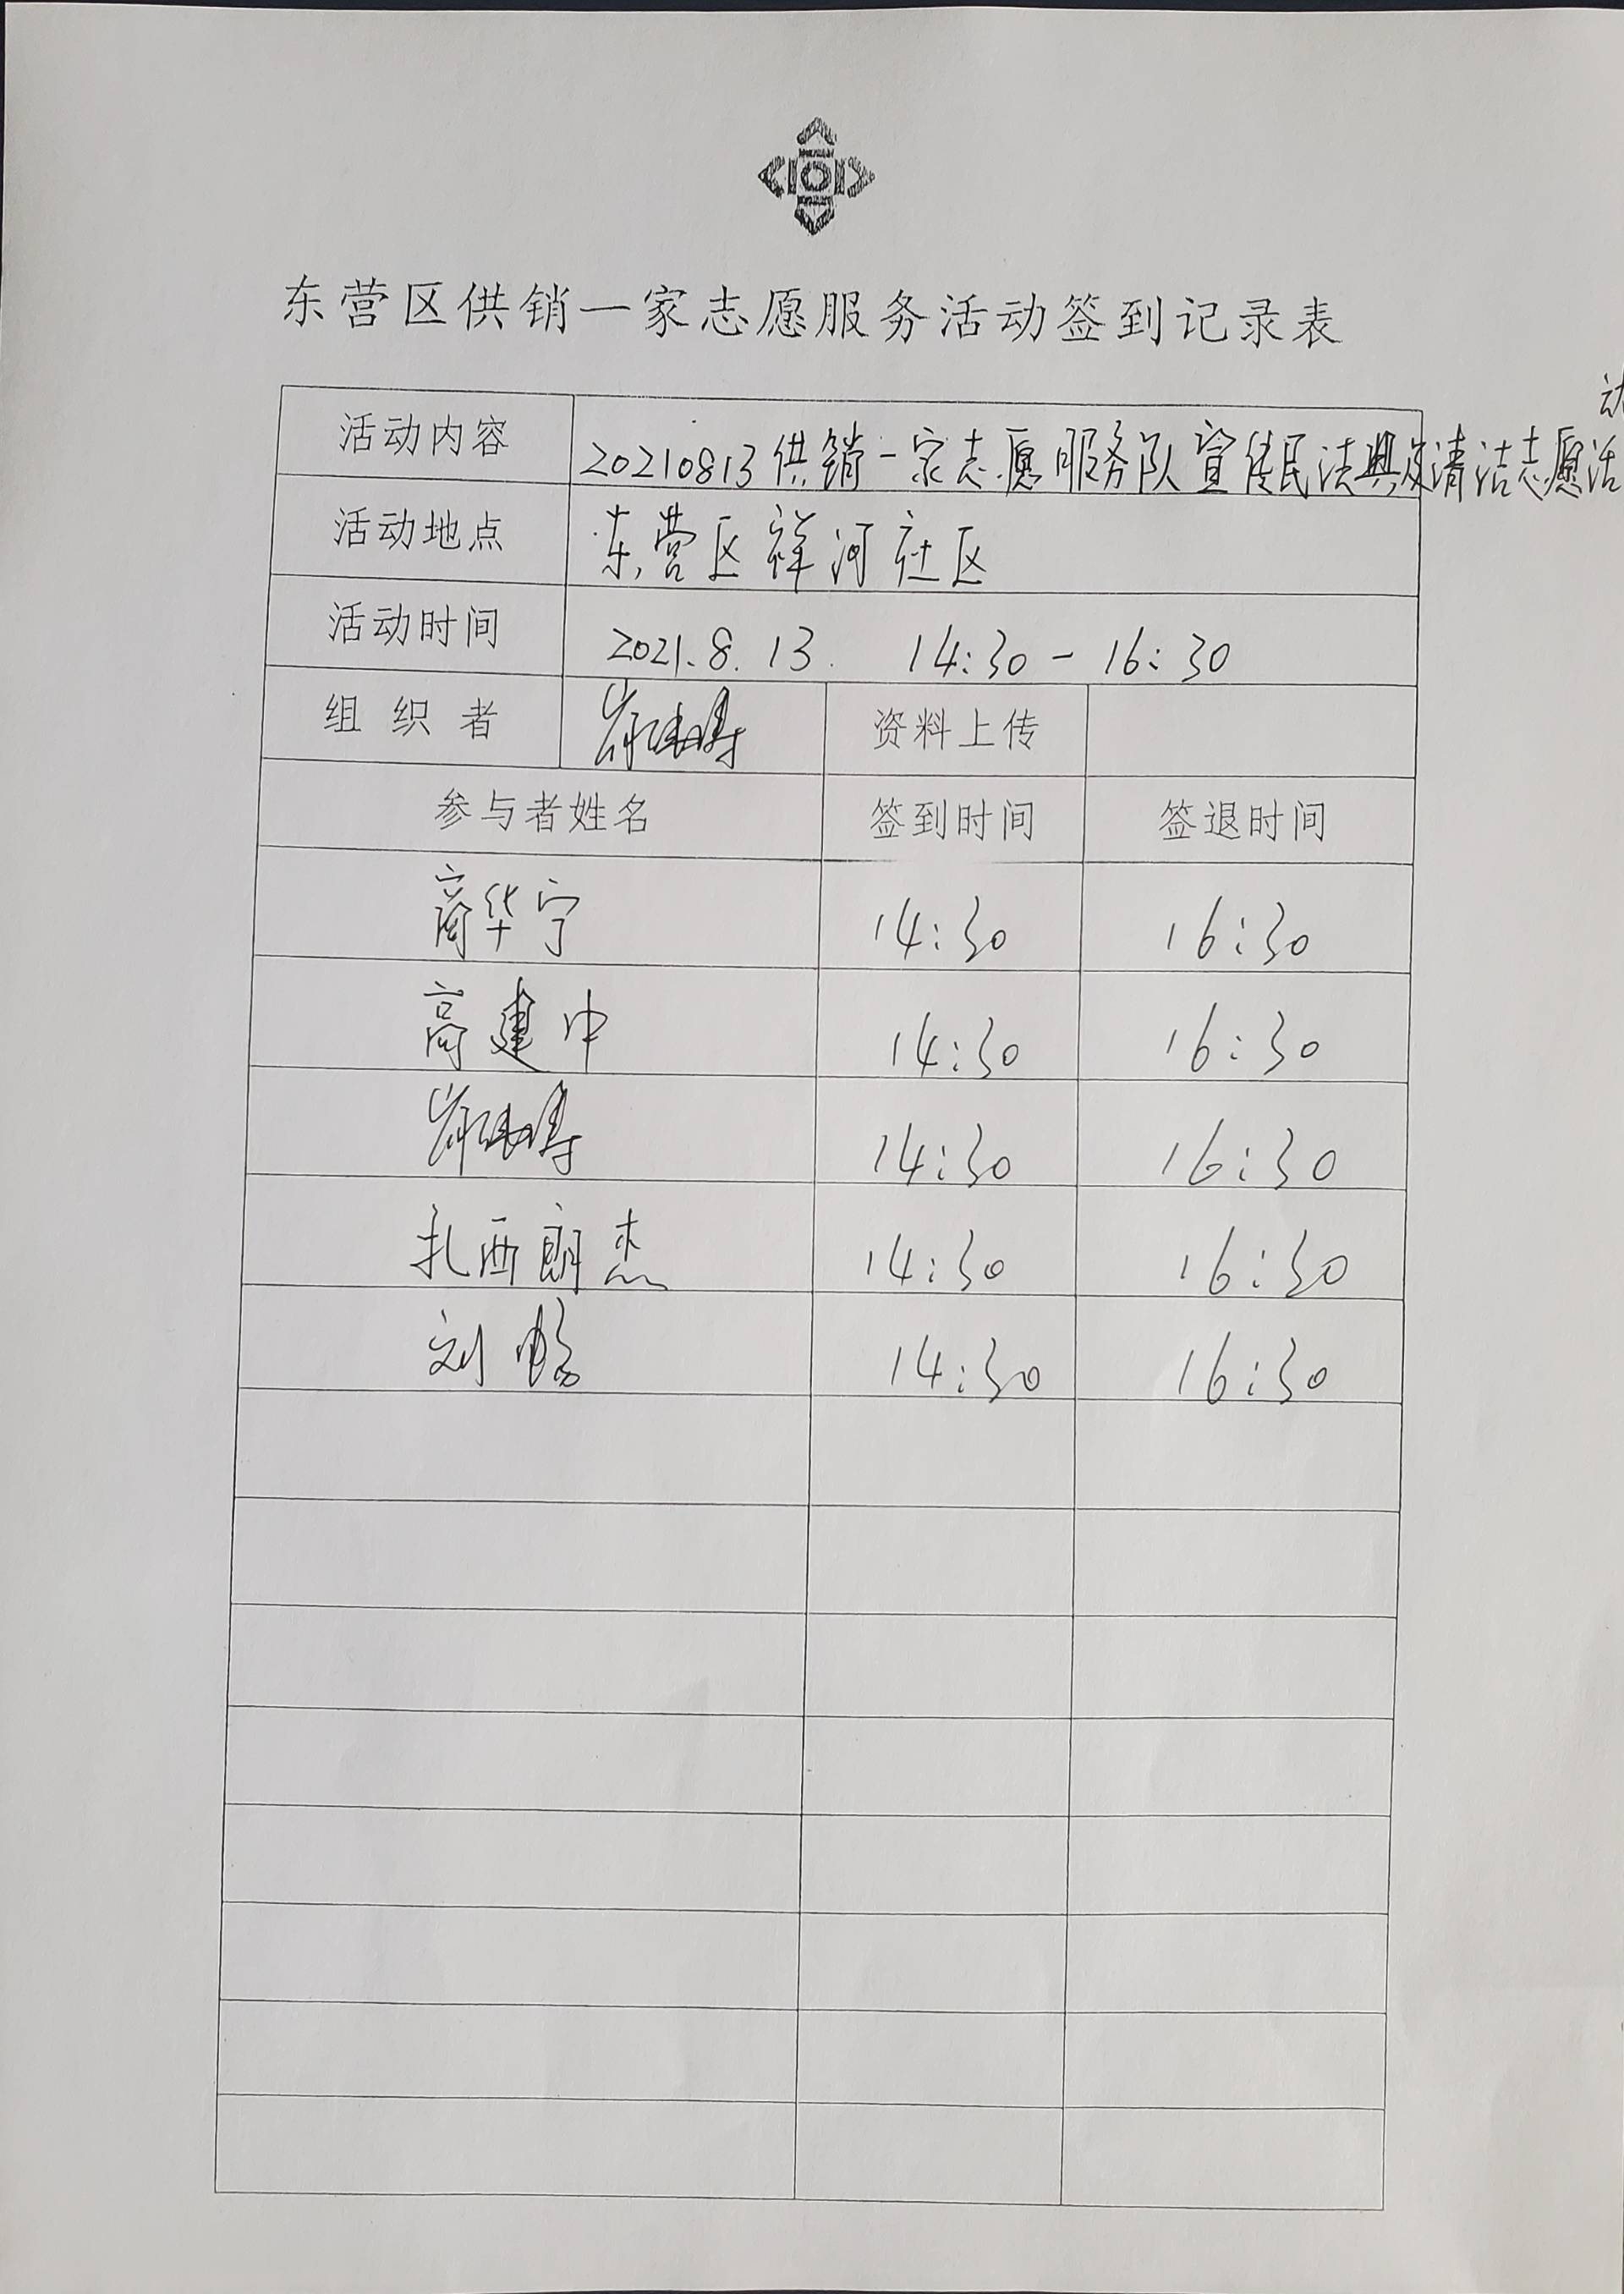 东营区供销一家志愿服务活动签到记录表
活动内容 20210813供销一家志愿服务队宣传民法典及清洁志愿活动
活动地点 东营区祥河社区
活动时间 2021.8.13. 14:30-16:30
组织者 资料上传
参与者姓名 签到时间 签退时间
商华宁 14:30 16:30
高建中 14:30 16:30
14:30 16:30
扎西朗杰 14:30 16:30
刘畅 14:30 16:30